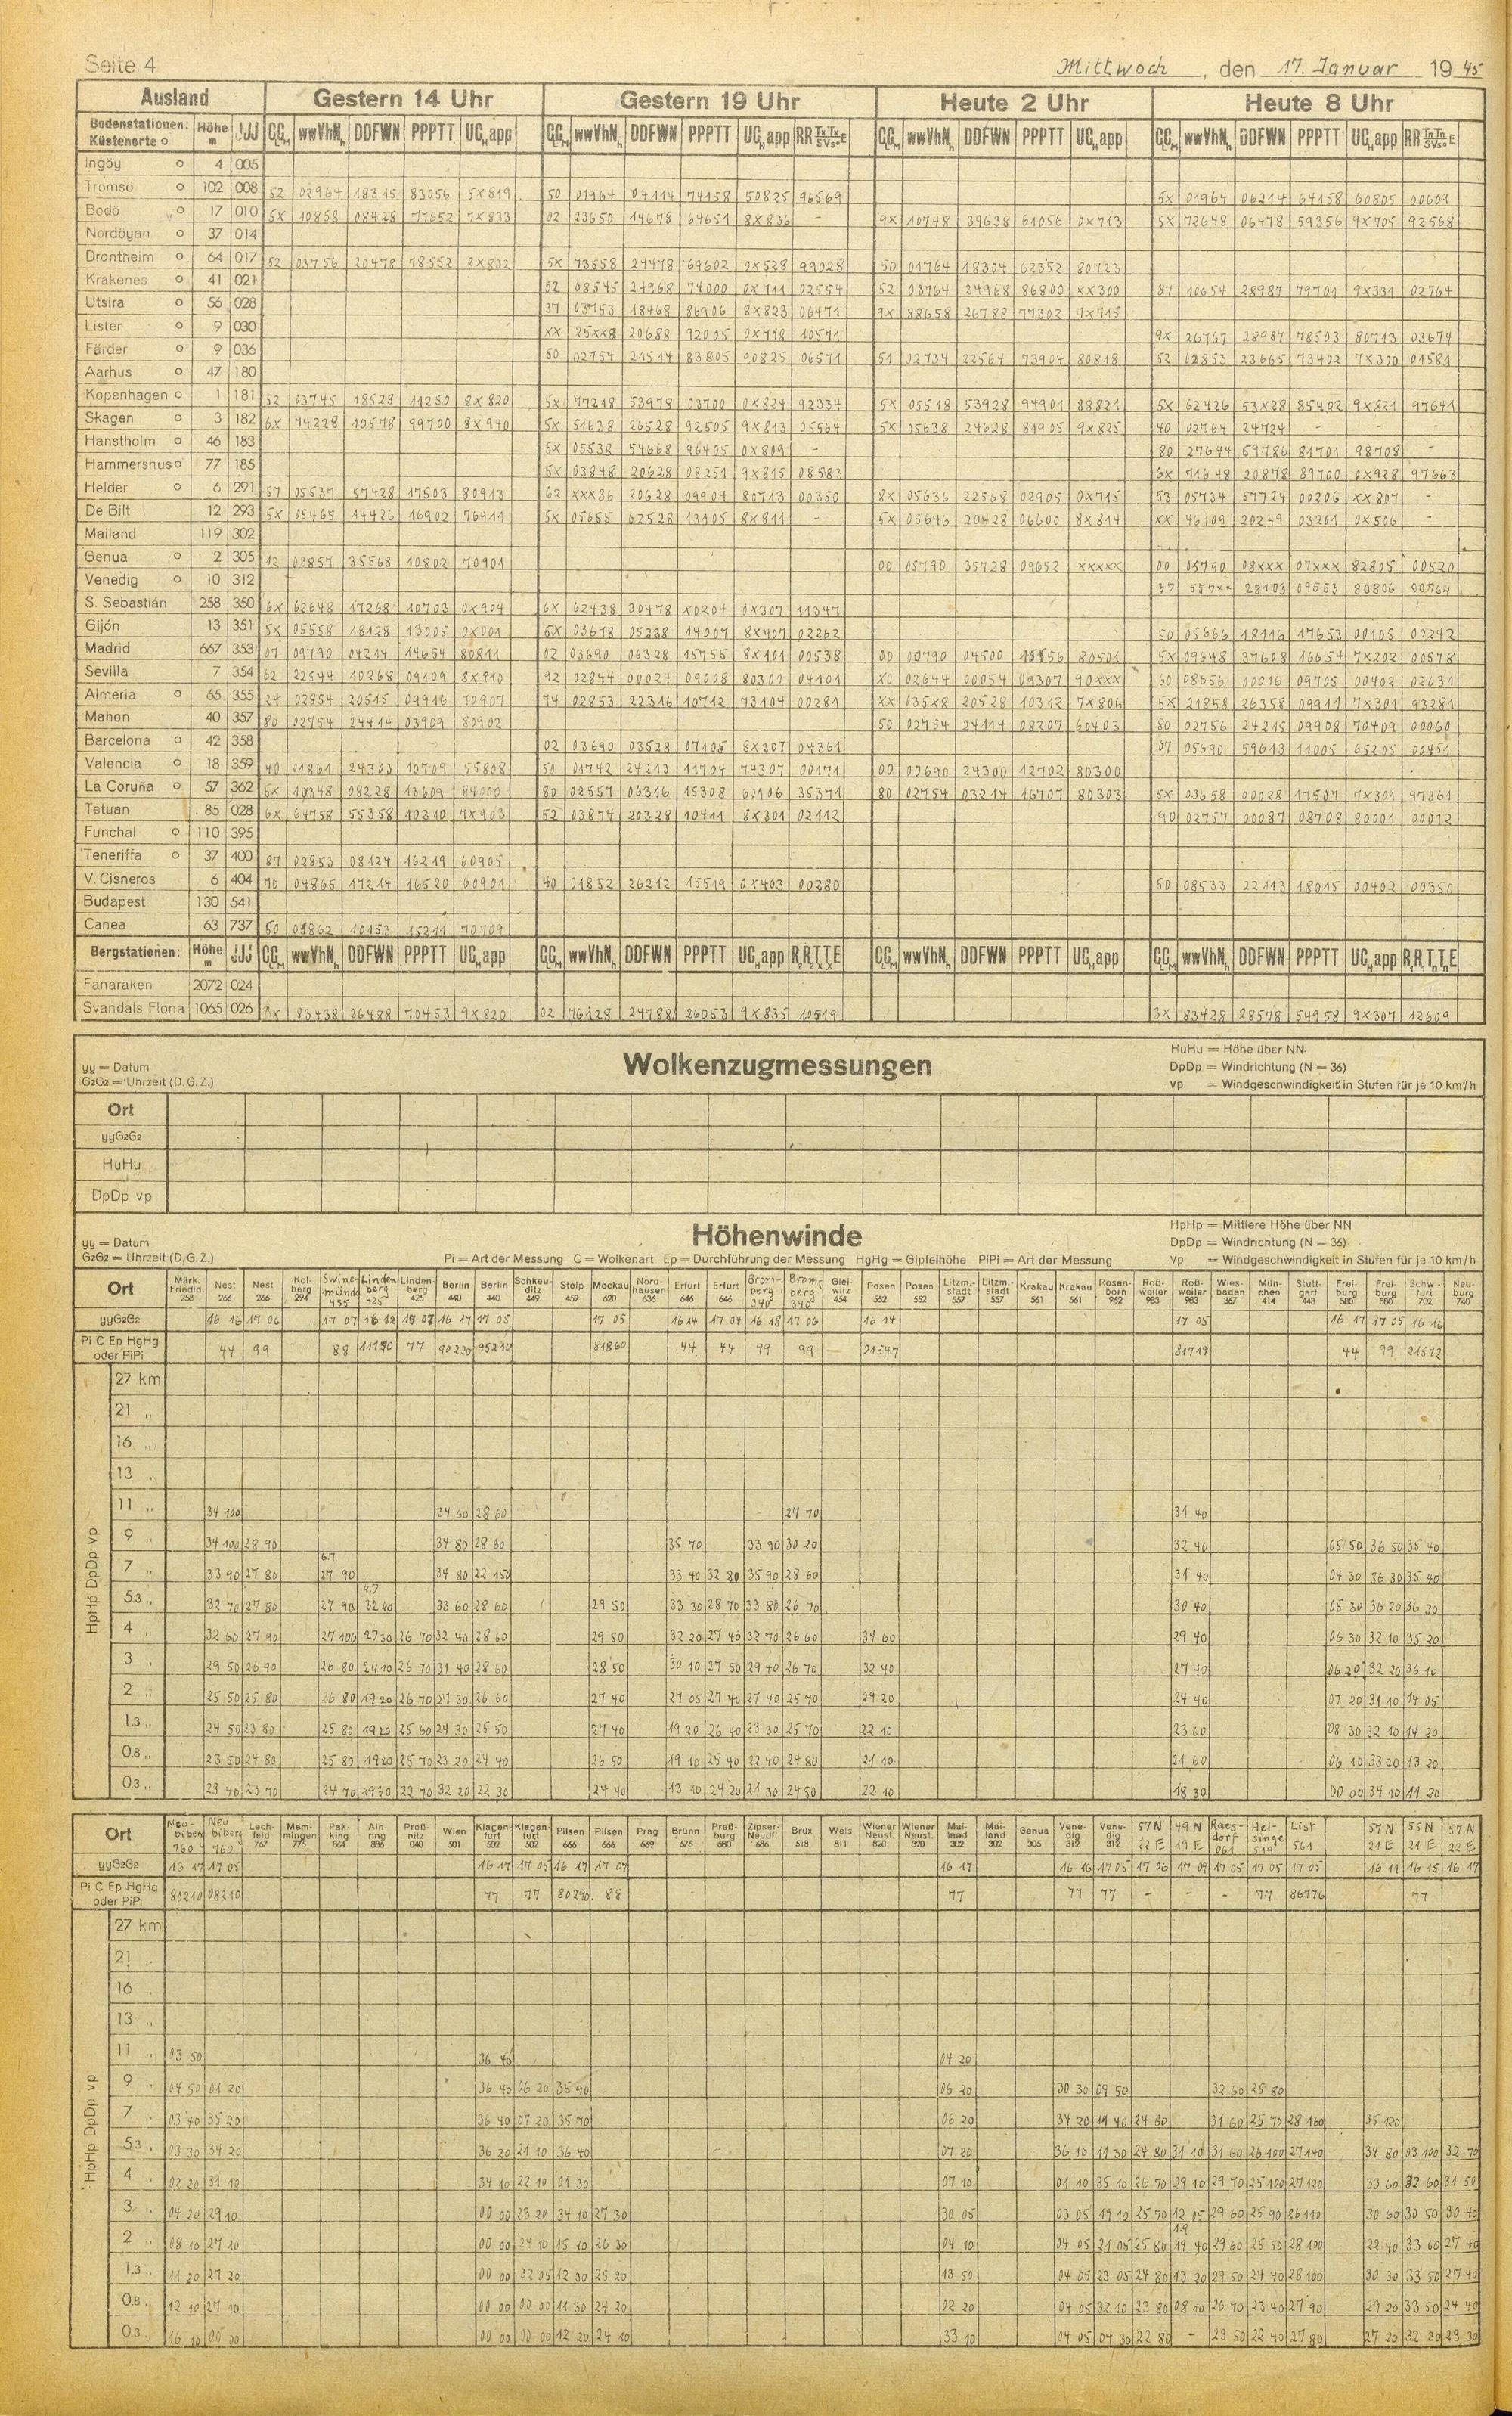 Seite 4 Mittwoch, den 17. Januar 1945
Ausland Gestern 14 Uhr Gestern 19 Uhr Heute 2 Uhr Heute 8 Uhr
Bodenstationen: Küstenorte o Höhe m JJJ wwVhNh DDFWN PPPTT wwVhNh DDFWN PPPTT RR wwVhNh DDFWN PPPTT wwVhNh DDFWN PPPTT RR
Ingöy o 4 005
Tromsö o 102 008 52 02964 18315 83056 5X819 50 01964 04114 74158 50825 96569 5X 01964 06214 64158 60805 00609
Bodö o 17 010 5X 10858 08428 77652 7X833 02 23650 14678 64651 8X836 – 9X 10748 39638 61056 0X713 5X 72648 06478 59356 9X705 92568
Nordöyan o 37 014
Drontheim o 64 017 52 03756 20478 78552 8X832 5X 73558 24478 69602 0X528 99028 50 01764 18304 62352 80723
Krakenes o 41 021 52 08545 24968 74000 0X711 02554 52 03764 24968 86800 XX300 87 10654 28987 79701 9X331 02764
Utsira o 56 028 37 03753 18468 86906 8X823 06471 9X 88658 26788 77302 7X715
Lister o 9 030 XX 25XX8 20688 92005 0X718 10571 9X 26767 28987 78503 80713 03674
Färder o 9 036 50 02754 21514 83805 90825 06571 51 02734 22564 73904 80818 52 02853 23665 73402 7X300 01581
Aarhus o 47 180
Kopenhagen o 1 181 52 03745 18528 11250 8X820 5X 77218 53978 03700 0X824 92334 5X 05518 53928 94901 88821 5X 62426 53X28 85402 9X821 97641
Skagen o 3 182 6X 74228 10578 99700 8X940 5X 51638 26528 92505 9X813 05564 5X 05638 24628 81905 9X825 40 02764 24724 – – –
Hanstholm o 46 183 5X 05538 54668 96405 0X809 – 80 27644 59786 81701 98708 –
Hammershus o 77 185 5X 03848 20628 08251 9X815 08583 6X 71648 20878 89700 0X928 97663
Helder o 6 291 57 05537 57428 17503 80913 62 XXX36 20628 09904 80713 00350 8X 05636 22568 02905 0X715 53 05734 57724 00206 XX807 –
De Bilt 12 293 5X 05465 14426 16902 76911 5X 05655 62528 13105 8X811 – 5X 05646 20428 06600 8X814 XX 46109 20249 03201 0X506 –
Mailand 119 302
Genua o 2 305 12 03857 35568 10802 70901 00 05790 35728 09652 XXXXX 00 05790 08XXX 07XXX 82805 00520
Venedig o 10 312 28103 09553 80806
S. Sebastián 258 350 6X 62648 17268 10703 0X904 6X 62438 30478 X0204 0X307 11347
Gijón 13 351 5X 05558 18128 13005 0X001 6X 03678 05228 14007 8X407 02262 50 05666 18116 17653 00105 00242
Madrid 667 353 07 09790 04214 14654 80811 02 03690 06328 15755 8X101 00538 00 00790 04500 80501 5X 09648 37608 16654 7X202 00578
Sevilla 7 354 62 22544 10268 09109 8X810 92 02844 00024 09008 80301 04101 X0 02644 00054 09307 90XXX 60 08656 00016 09705 00402 02031
Almeria o 65 355 24 02854 20515 09916 70907 74 02853 22316 10712 73104 00281 XX 035X8 20528 10312 7X806 5X 21858 26358 09911 7X301 93281
Mahon 40 357 80 02754 24414 03909 80902 50 02754 24114 08207 60403 80 02756 24215 09908 70409 00060
Barcelona o 42 358 02 03690 03528 07105 8X307 04361 07 05690 59613 11005 65205 00451
Valencia o 18 359 40 01861 24303 10709 55808 50 01742 24213 11704 74307 00171 00 00690 24300 12702 80300
La Coruña o 57 362 6X 10348 08228 13609 80 02557 06316 15308 60106 35371 80 02754 03214 16707 80303 5X 03658 00028 17507 7X301 97361
Tetuan 85 028 6X 64758 55358 10310 7X903 52 03874 20328 10411 8X301 02112 90 02757 00087 08708 80001 00012
Funchal o 110 395
Teneriffa o 37 400 87 02853 08124 16219 60905
V. Cisneros 6 404 70 04865 17214 16520 60901 40 01852 26212 15519 0X403 00280 50 08533 22113 18015 00402 00350
Budapest 130 541
Canea 63 737 50 03862 10153 15211 70709
Bergstationen: Höhe m JJJ wwVhNh DDFWN PPPTT wwVhNh DDFWN PPPTT wwVhNh DDFWN PPPTT wwVhNh DDFWN PPPTT
Fanaraken 2072 024
Svandals Flona 1065 026 83438 26488 70453 9X820 02 76128 24788 26053 9X835 10519 3X 83428 28578 54958 9X307 12609
Wolkenzugmessungen
yy = Datum
G2G2 = Uhrzeit (D.G.Z.)
HuHu = Höhe über NN
DpDp = Windrichtung (N = 36)
vp = Windgeschwindigkeit in Stufen für je 10 km/h
Ort
yyG2G2
HuHu
DpDp vp
Höhenwinde
yy = Datum
G2G2 = Uhrzeit (D.G.Z.)
Pi = Art der Messung C = Wolkenart Ep = Durchführung der Messung HgHg = Gipfelhöhe PiPi = Art der Messung
HpHp = Mittlere Höhe über NN
DpDp = Windrichtung (N = 36)
Vp = Windgeschwindigkeit in Stufen für je 10 km/h
Ort Märk. Friedld. 258 Nest 266 Nest 266 Kolberg 294 Swinemünde 455 Lindenberg 425 Lindenberg 425 Berlin 440 Berlin 440 Schkeuditz 449 Stolp 459 Mockau 620 Nordhausen 636 Erfurt 646 Erfurt 646 Bromberg 340 Bromberg 340 Gleiwitz 454 Posen 552 Posen 552 Litzm.-stadt 557 Litzm.-stadt 557 Krakau 561 Krakau 561 Rosenborn 952 Roßweiler 983 Roßweiler 983 Wiesbaden 367 München 414 Stuttgart 443 Freiburg 580 Freiburg 580 Schw-furt 702 Neuburg 740
yyG2G2 16 16 17 06 17 07 16 12 17 07 16 17 17 05 17 05 16 14 17 04 16 18 17 06 16 14 17 05 16 17 17 05 16 16
Pi C Ep HgHg oder PiPi 44 99 88 11190 77 90220 95230 81860 44 44 99 99 – 21547 81719 44 99 21572
HpHp DpDp vp
27 km
21 „
16 „
13 „
11 „ 34 100 34 60 28 60 27 70 31 40
9 „ 34 100 28 90 34 80 28 80 35 70 33 90 30 20 32 40 05 50 36 50 35 40
7 „ 33 90 27 80 6.7 27 90 34 80 22 150 33 40 32 80 35 90 28 60 31 40 04 30 36 30 35 40
5.3 „ 32 70 27 80 27 90 4.7 32 40 33 60 28 60 29 50 33 30 28 70 33 80 26 70 30 40 05 30 36 20 36 30
4 „ 32 60 27 90 27 100 27 30 26 70 32 40 28 60 29 50 32 20 27 40 32 70 26 60 34 60 29 40 06 30 32 10 35 20
3 „ 29 50 26 90 26 80 24 10 26 70 31 40 28 60 28 50 30 10 27 50 29 40 26 70 32 40 27 40 06 20 32 20 36 10
2 „ 25 50 25 80 26 80 19 20 26 70 27 30 26 60 27 40 27 05 27 40 27 40 25 70 29 20 24 40 07 20 31 10 14 05
1.3 „ 24 50 23 80 25 80 19 20 25 60 24 30 25 50 27 40 19 20 26 40 23 30 25 70 22 10 23 60 08 30 32 10 14 20
0.8 „ 23 50 24 80 25 80 19 20 25 70 23 20 24 40 26 50 19 10 25 40 22 40 24 80 21 10 21 60 06 10 33 20 13 20
0.3 „ 23 40 23 70 24 70 19 30 22 70 32 20 22 30 24 40 13 10 24 20 21 30 24 50 22 10 18 30 00 00 34 10 11 20
Ort Neubiberg 760 Neubiberg 760 Lechfeld 767 Memmingen 775 Pakking 864 Ainring 886 Proßnitz 040 Wien 501 Klagenfurt 502 Klagenfurt 502 Pilsen 666 Pilsen 666 Prag 669 Brünn 675 Preßburg 680 Zipser-Neudf. 686 Brüx 518 Wels 811 Wiener Neust. 820 Wiener Neust. 320 Mailand 302 Mailand 302 Genua 305 Venedig 312 Venedig 312 57 N 22 E 49 N 19 E Raesdorf 061 Helsinge 519 List 561 57 N 21 E 55 N 21 E 57 N 22 E
yyG2G2 16 17 17 05 16 17 17 05 16 17 17 07 16 17 16 16 17 05 17 06 17 09 17 05 17 05 17 05 16 11 16 15 16 17
Pi C Ep HgHg oder PiPi 80210 08210 77 77 80290 88 77 77 77 – – – 77 86776 77
HpHp DpDp vp
27 km
21 „
16 „
13 „
11 „ 03 50 36 40 04 20
9 „ 04 50 01 20 36 40 06 20 35 90 06 20 30 30 09 50 32 60 25 80
7 „ 03 40 35 20 36 40 07 20 35 70 06 20 34 20 11 40 24 60 31 60 25 70 28 160 35 120
5.3 „ 03 30 34 20 36 20 21 10 36 40 07 20 36 10 11 30 24 80 31 10 31 60 26 100 27 140 34 80 03 100 32 70
4 „ 02 20 31 10 34 10 22 10 01 30 07 10 01 10 35 10 26 70 29 10 29 70 25 100 27 120 33 60 32 60 31 50
3 „ 04 20 29 10 00 00 23 20 34 10 27 30 30 05 03 05 19 10 25 70 12 05 29 60 25 90 26 110 30 60 30 50 30 40
2 „ 08 10 27 10 00 00 24 10 15 10 26 30 04 10 04 05 21 05 25 80 1.9 19 40 29 60 25 50 28 100 22 40 33 60 27 40
1.3 „ 11 20 27 20 00 00 32 05 12 30 25 20 13 50 04 05 23 05 24 80 13 20 29 50 24 40 28 100 30 30 33 50 27 40
0.8 „ 12 10 27 10 00 00 00 00 11 30 24 20 02 20 04 05 32 10 23 80 08 10 26 70 23 40 27 90 29 20 33 50 24 40
0.3 „ 16 10 00 00 00 00 00 00 12 20 24 10 33 10 04 05 04 30 22 80 – 23 50 22 40 27 80 27 20 32 30 23 30